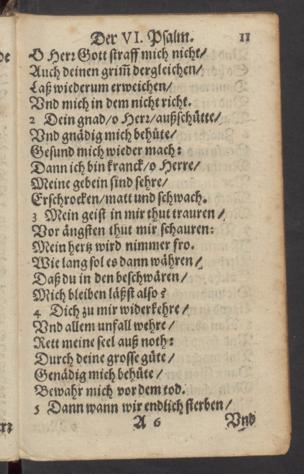 Der VI. Psalm. 11
O Herr Gott straff mich nicht/
Auch deinen grim̃ dergleichen/
Laß wiederum erweichen/
Vnd mich in dem nicht richt.
2 Dein gnad/o Herr/außschütte/
Vnd gnädig mich behüte/
Gesund mich wieder mach:
Dann ich bin kranck/o Herre/
Meine gebein sind sehre/
Erschrocken/matt und schwach.
3 Mein geist in mir thut trauren/
Vor ängsten thut mir schauren:
Mein hertz wird nimmer fro.
Wie lang sol es dann währen/
Daß du in den beschwären/
Mich bleiben läßst also?
4 Dich zu mir widerkehre/
Vnd allem unfall wehre/
Rett meine seel auß noth:
Durch deine grosse güte/
Genädig mich behüte/
Bewahr mich vor dem tod.
5 Dann wann wir endlich sterben/
A 6 Vnd